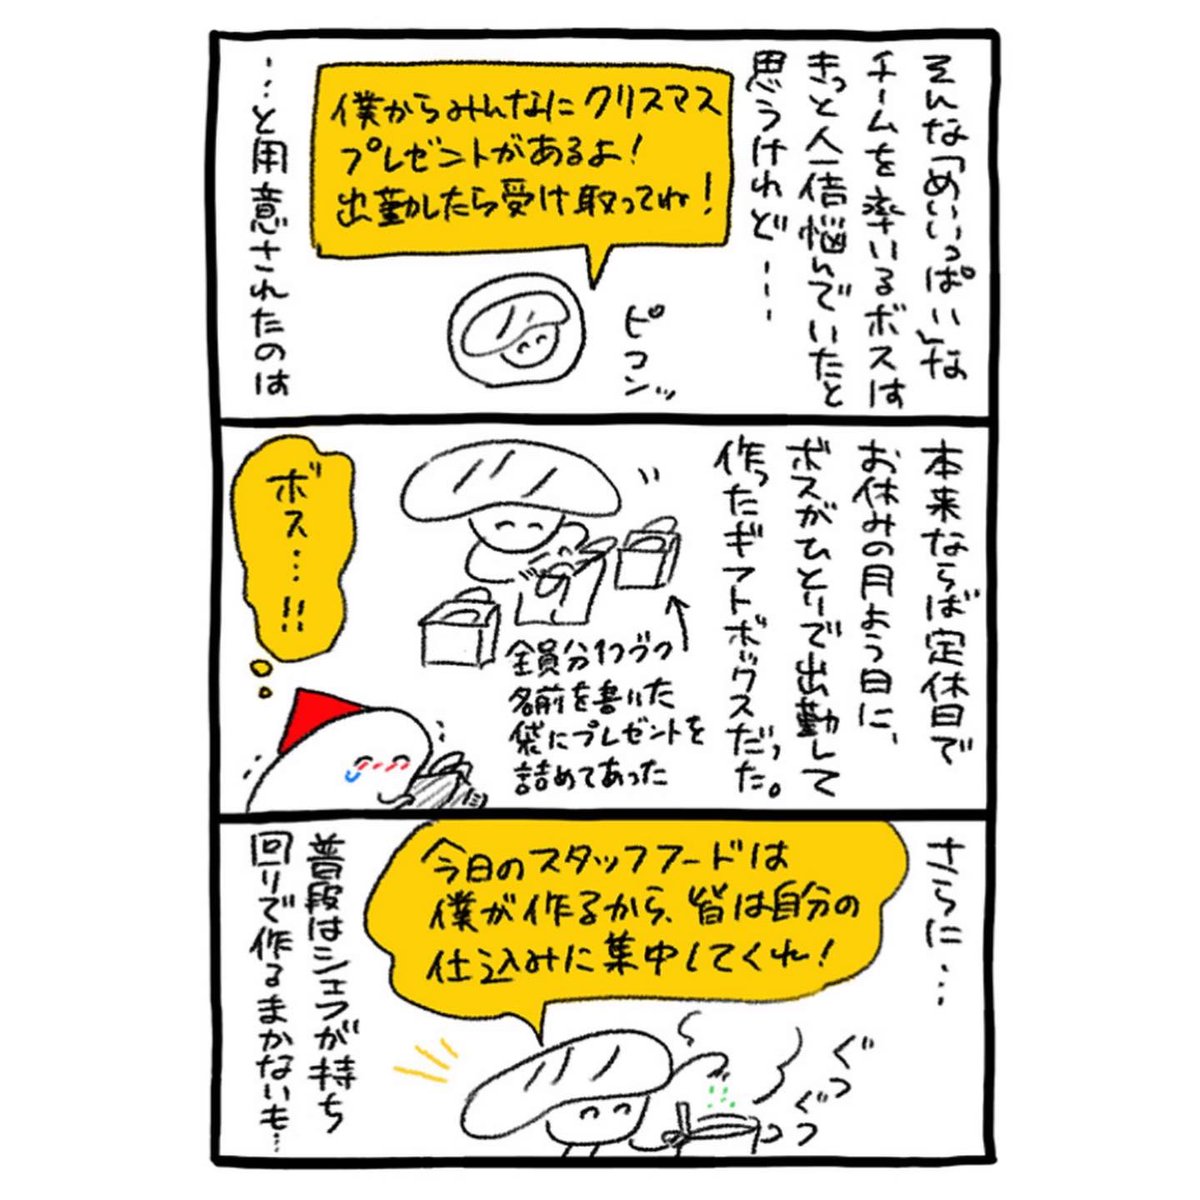 そんな「めいいっぱい」な
チームを率いるボスは
きっと人一倍悩んでいたと
思うけれど…
僕からみんなにクリスマス
プレゼントがあるよ！
出勤したら受け取ってね！
ピコンッ
…と用意されたのは
本来ならば定休日で
お休みの月よう日に、
ボスがひとりで出勤して
作ったギフトボックスだった。
全員分1つづつ
名前を書いた
袋にプレゼントを
詰めてあった
ボス…!!
さらに…
今日のスタッフフードは
僕が作るから、皆は自分の
仕込みに集中してくれ！
ぐつ
ぐつ
普段はシェフが持ち
回りで作るまかないも…